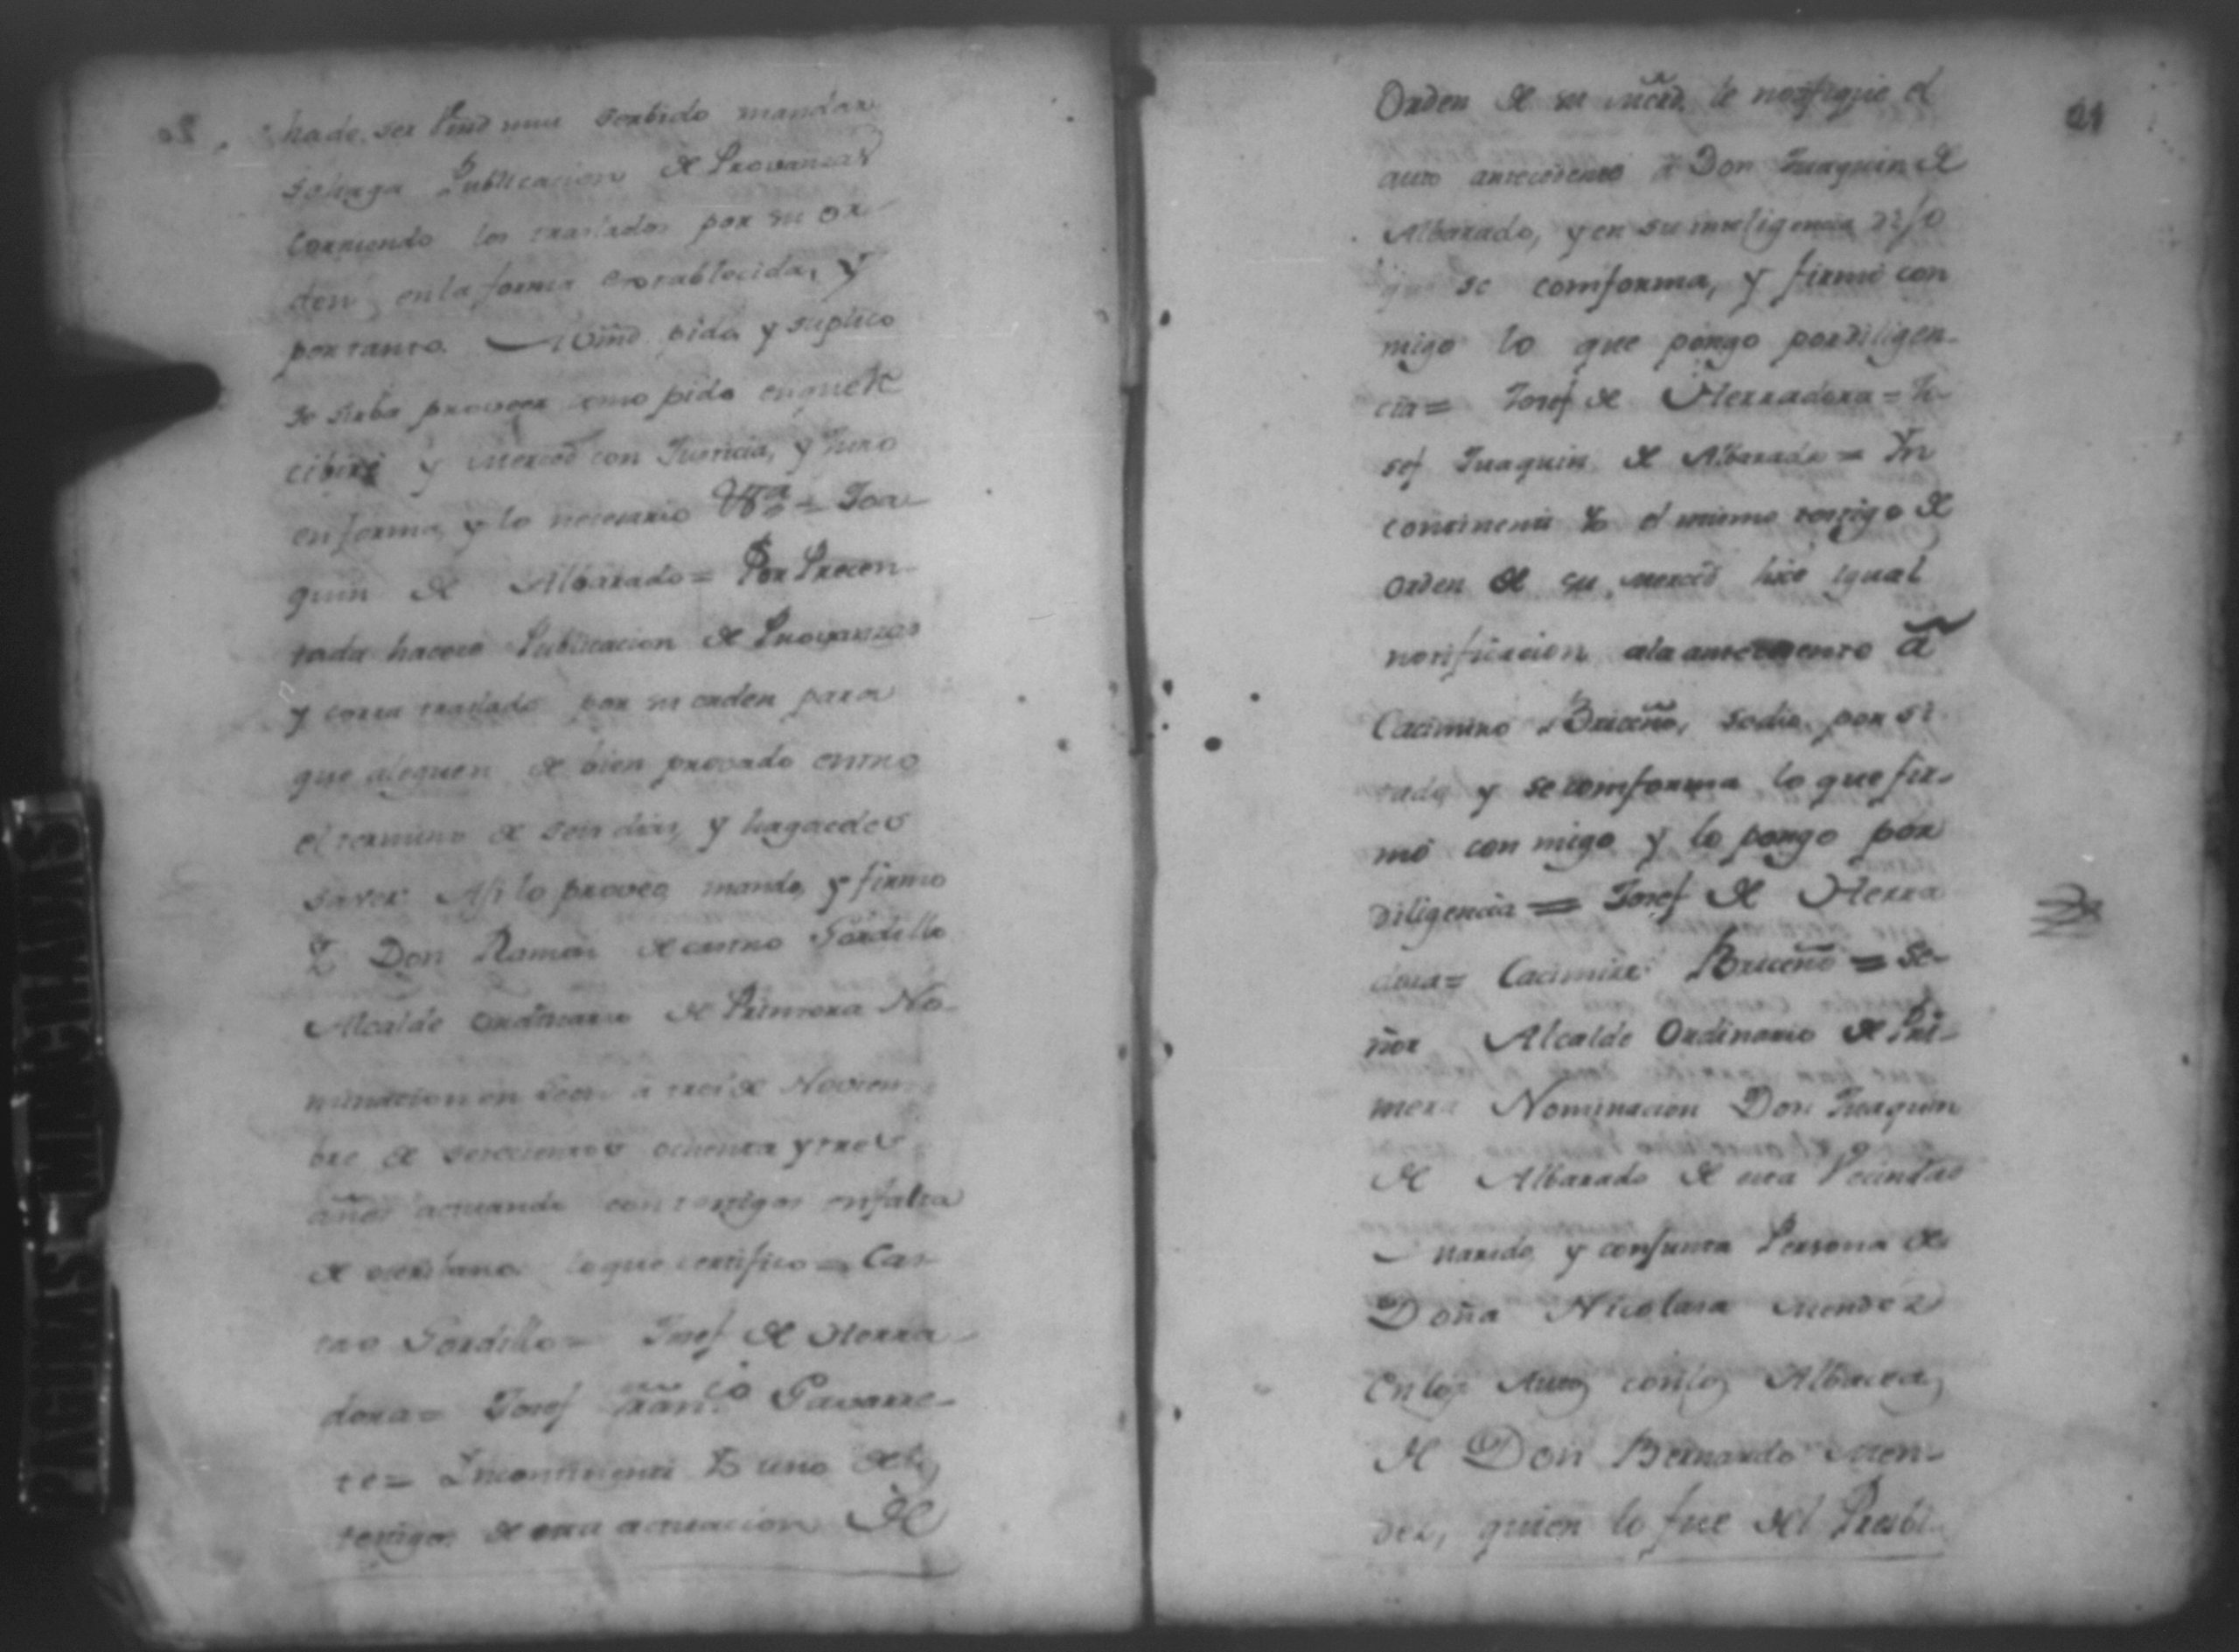 hade. ser Vmd mui serbido mandar
se haga Publicacion de Provanzas
corriendo los traslados por su or-
den, en la forma establecida, y
por tanto. A Vmd pido y suplico
se sirba proveer como pido en que re
cibiré y merced con Justicia, y Juro
en forma, y lo necesario Vra = Joa-
quin de Albarado = Por Presen-
tada hacese Publicacion de Provanzas
y corra traslado por su orden para
que aleguen de bien provado entro
el termino de seis dias, y hagaceles
saver. Asi lo proveo, mando, y firmo
Yo Don Ramon de castro Gordillo
Alcalde Ordinario de Primera No-
minacion en Leon a tres de Noviem
bre de setecientos ochenta y tres
años actuando con testigos en falta
de escribano lo que certifico = Cas-
tro Gordillo = Josef de Herra-
dora = Josef Navarre-
te = Incontinenti Yo uno de los
testigos de esta actuacion De
21
Orden de su mrcd. le notifique el
auto antecedente à Don Juaquin de
Albarado, y en su inteligencia dijo
que se comforma, y firmó con
migo lo que pongo por diligen-
cia = Josef de Herradora = Jo-
sef Juaquin de Albarado = Yn
continenti Yo el mismo testigo de
orden de su merced hice igual
notificacion ala antecedente à
Cacimiro Briceño, sedio por si
tado y se comforma lo que fir-
mó con migo y lo pongo por
diligencia = Josef de Herra
dora = Cacimiro Briceño = Se-
ñor Alcalde Ordinario de Pri-
mera Nominacion Don Juaquin
de Albarado de esta Vecindad
marido, y conjunta Persona de
Doña Nicolasa Mendez
En los Autos con los Albaceas
de Don Bernardo Men-
dez, quien lo fue del Presbi-
PAGINAS MANCHADAS